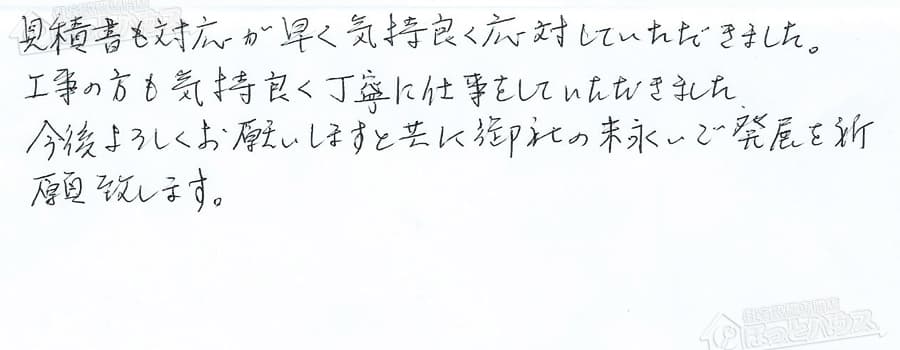 見積書も対応が早く気持良く応対していただきました。
工事の方も気持良く丁寧に仕事をしていただきました
今後よろしくお願いしますと共に御社の末永いご発展を祈
願致します。
ほっとハウス